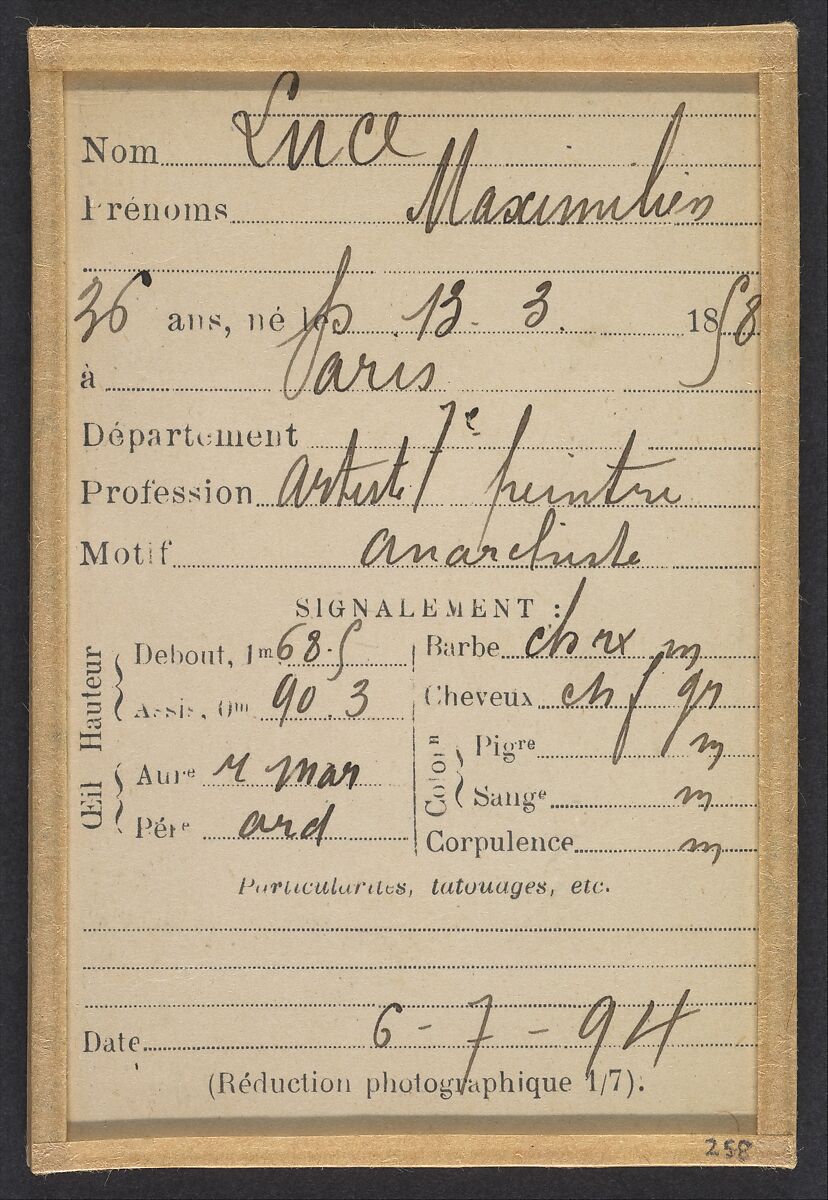 Nom Luce
Prénoms Maximilien
36 ans, né le 13. 3. 1858
à Paris
Département 7e
Profession artiste peintre
Motif anarchiste
SIGNALEMENT :
Hauteur
Debout, 1m 68.5
Assis, 0m 90.3
Œil
Aure r mar
Pére ord
Barbe ch rx m
Cheveux ch f gr
Coloron
Pigre m
Sange m
Corpulence m
Particularités, tatouages, etc.
Date 6 - 7 - 94
(Réduction photographique 1/7).
258